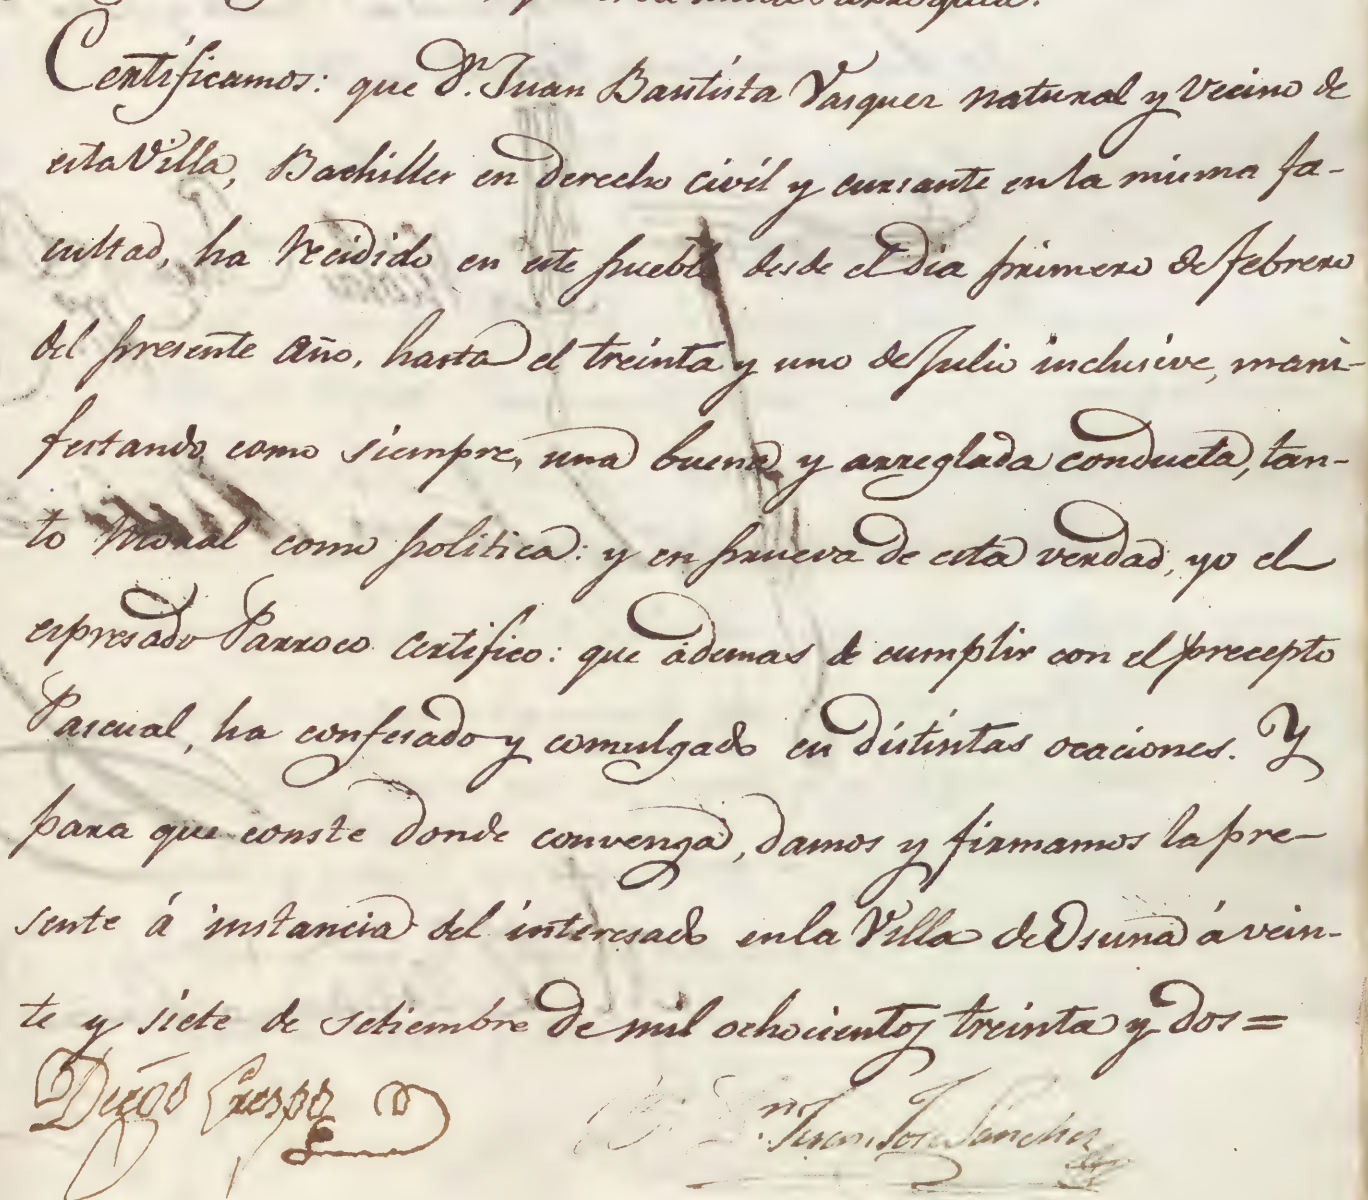 Parroquia.
Certificamos: que Dn. Juan Bautista Vasquez natural y vecino de
esta Villa, Bachiller en derecho civil y cursante en la misma fa-
cultad, ha recidido en este pueblo desde el dia primero de febrero
del presente año, hasta el treinta y uno de Julio inclusive, mani-
festando como siempre, una buena y arreglada conducta, tan-
to moral como politica: y en prueva de esta verdad, yo el
espresado Parroco certifico: que ademas de cumplir con el precepto
Pascual, ha confesado y comulgado en distintas ocaciones. Y
para que conste donde convenga, damos y firmamos la pre-
sente á instancia del interesado en la Villa de Osuna á vein-
te y siete de setiembre de mil ochocientos treinta y dos=
Diego Crespo
Dn. Juan Jose Sanchez